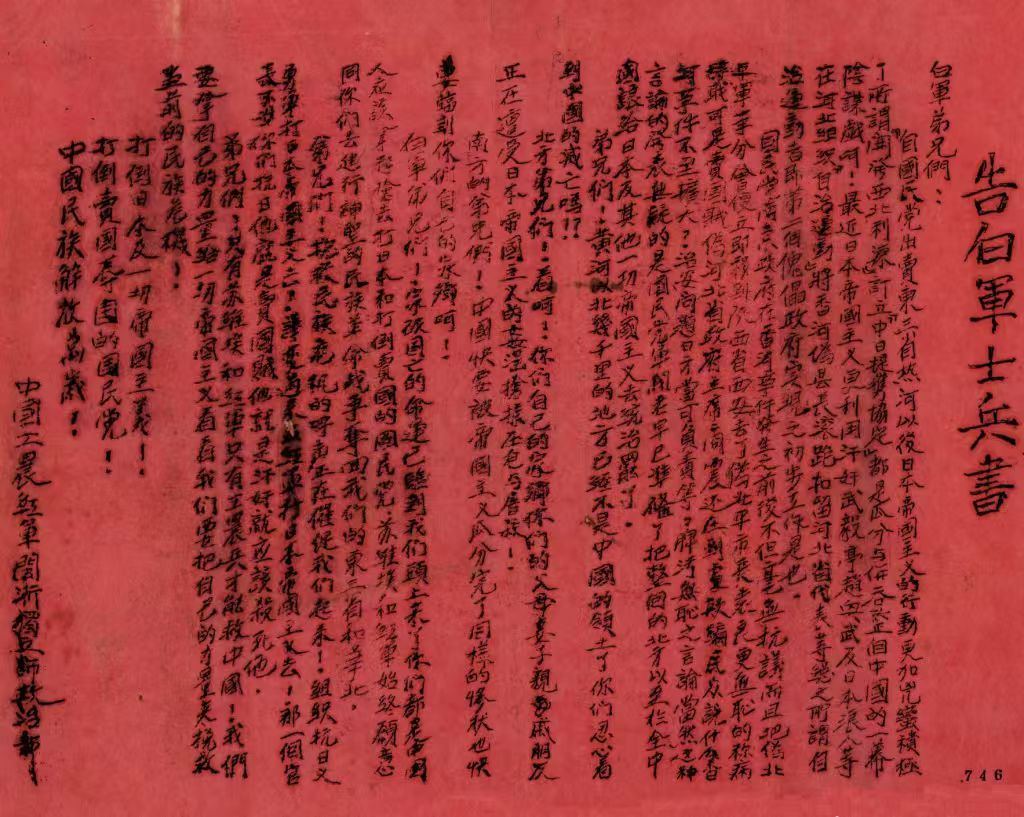 告白軍士兵書
白軍弟兄們：
自國民党出賣東三省熱河以後日本帝國主义的行動更加兇蠻積極
了所謂開發西北利源訂立中日提携協定都是瓜分与併吞正個中國的一幕
陰謀戲呵！最近日本帝國主义回利用汗奸武毅亭趙向武及日本浪人等
在河北組織自治運動將香河偽县長 和留河北省代表等 之所謂自
治運動者即第一個傀儡政府实現之初步工作是也。
國民党南京政府在香河事件發生之前後不但毫無抗議而且把偽北
平軍事分會 立即移到陝西省西安去了偽北平市長袁良更無恥的称病
偽河北省政府主席商震还在 欺騙民众説什么香
河事件不至擴大？治安問題日方當可負責等？ 無恥之言論當然这种
言論的發表無疑的是國民党軍閥老早已準備了把整個的北方以至於全中
國 給日本及其他一切帝國主义去統治罷了。
弟兄們！黃河以北幾千里的地方已經不是中國的領土了你們忍心看
到中國的滅亡嗎！？
北方弟兄們！看呵！你們自己的家鄉你們的父母妻子親戚朋友
正在遭受日本帝國主义的姦淫擄掠压迫与屠殺！
南方的弟兄們！中國快要被帝國主义瓜分完了同樣的慘状也快
要臨到你們自己的家鄉呵！
白軍弟兄們！家破國亡的命運已臨到我們頭上来了你們都是中國
人应该拿起槍去打日本和打倒賣國的國民党苏維埃和紅軍始終願意
同你們去進行神聖的民族革命战爭奪回我們的東三省和華北。
弟兄們！ 民族危机的呼声正在催促我們起来！組织抗日义
勇軍打日本帝國主义去！ 日本帝國主义去！那一個官
長不 你們抗日他就是賣國賊他就是汗奸就应该殺死他。
弟兄們！只有苏維埃和紅軍只有工農兵才能救中國！我們
要拿自己的力量给一切帝國主义看看我們要把自己的力量来挽救
当前的民族危機！
打倒日本及一切帝國主義！
打倒賣國辱国的國民党！
中國民族解放萬歲！
中國工農紅軍閩浙獨立師政治部
746